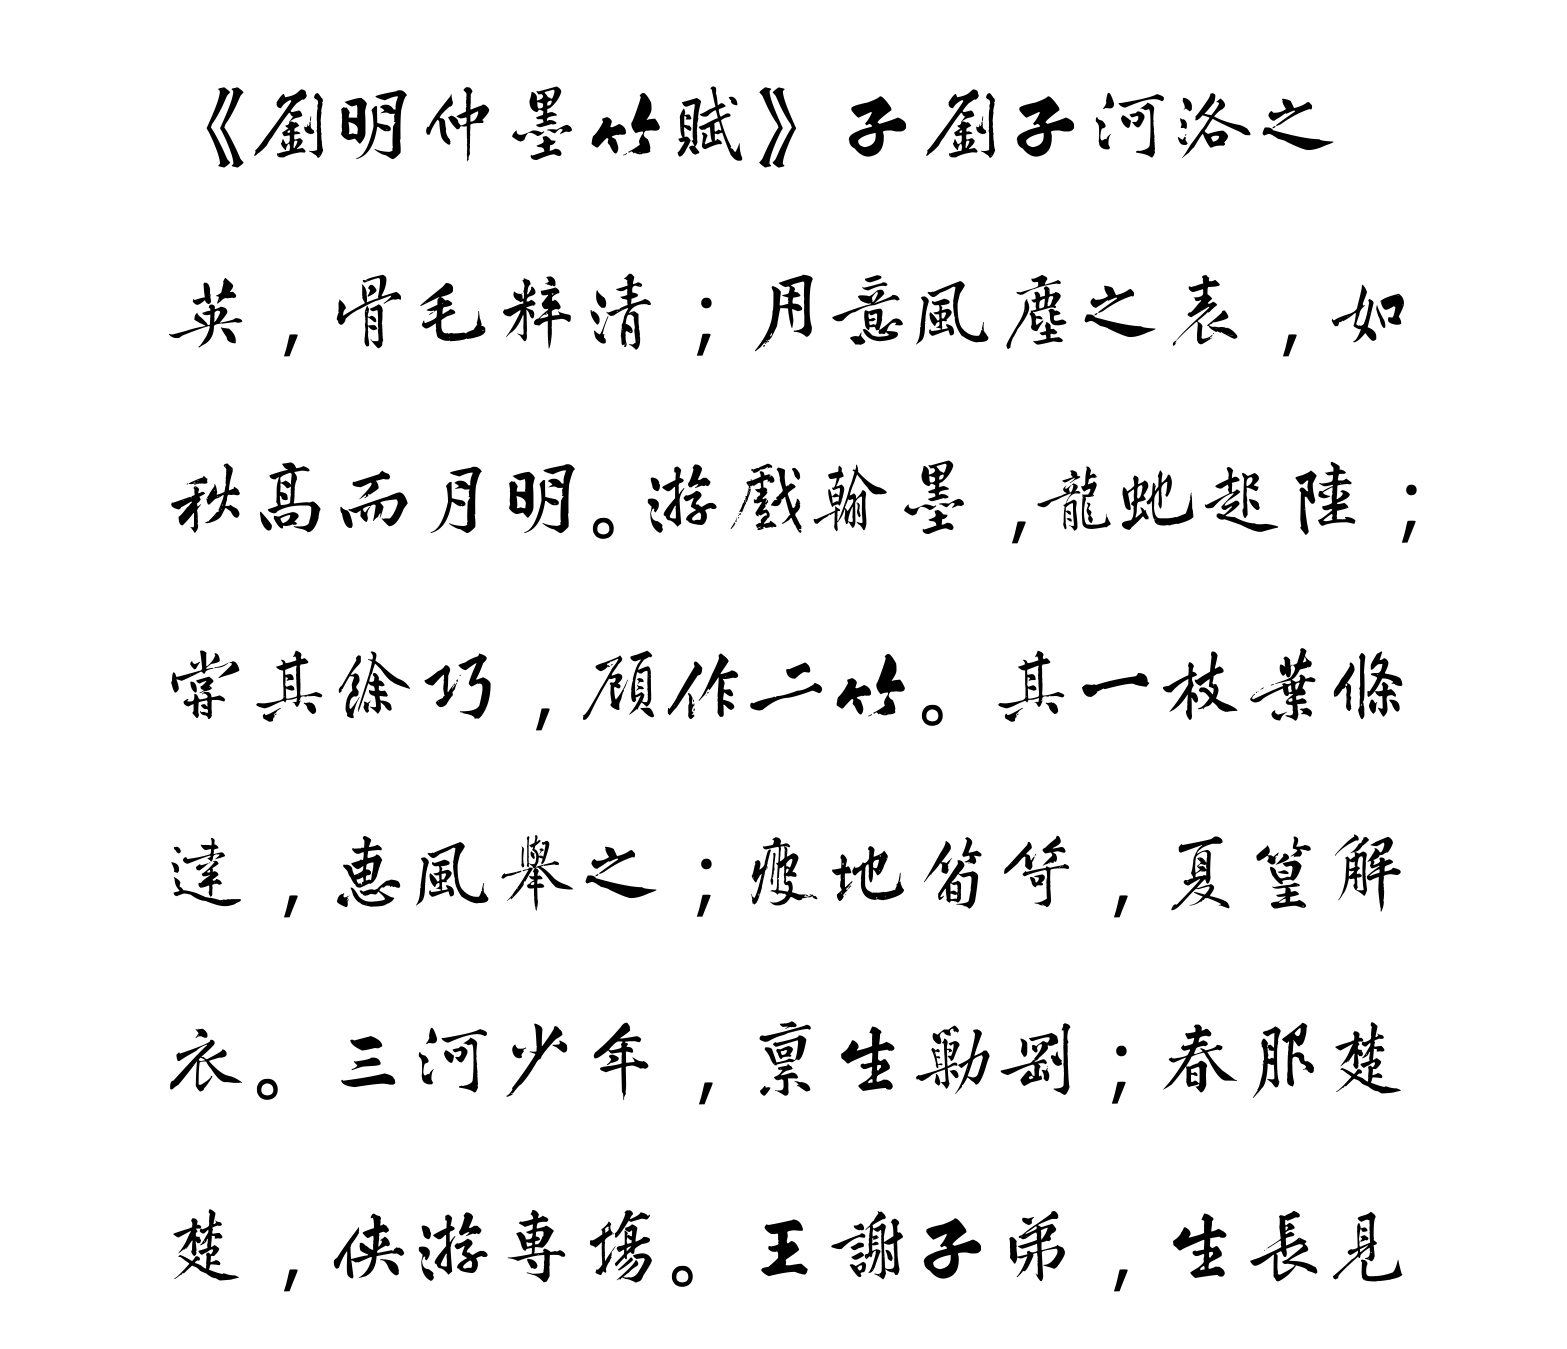 《劉明仲墨竹賦》子劉子河洛之
英，骨毛粹清；用意風塵之表，如
秋高而月明。游戲翰墨，龍虵起陸；
嘗其餘巧，顧作二竹。其一枝葉條
達，惠風舉之；瘦地筍笴，夏篁解
衣。三河少年，禀生勦剛；春服楚
楚，俠游專場。王謝子弟，生長見